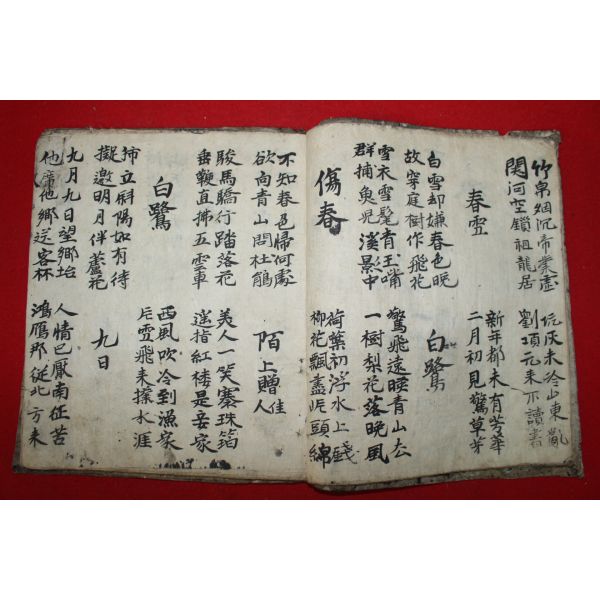 竹帛烟沉帝業虛
関河空鎖祖龍居
坑灰未冷山東亂
劉項元来不讀書
春雪
新年都未有芳華
二月初見驚草芽
白雪却嫌春色晚
故穿庭樹作飛花
白鷺
雪衣雪髦青玉嘴
群捕魚兒溪景中
驚飛遠暎青山去
一樹梨花落晚風
傷春
荷葉初浮水上錢
柳花飄盡岸頭綿
不知春色帰何處
欲向青山問杜鵑
陌上贈佳人
駿馬驕行踏落花
垂鞭直拂五雲車
美人一笑搴珠箔
遙指紅樓是妾家
白鷺
西風吹冷到漁家
片雪飛来探水涯
立斜陽如有待
擬邀明月伴蘆花
九日
九月九日望鄉坮
他席他鄉送客杯
人情已厭南征苦
鴻鴈那從北方来